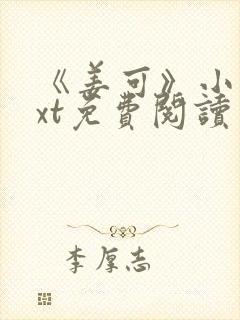 《姜可》小
xt免費閱讀
李厚志